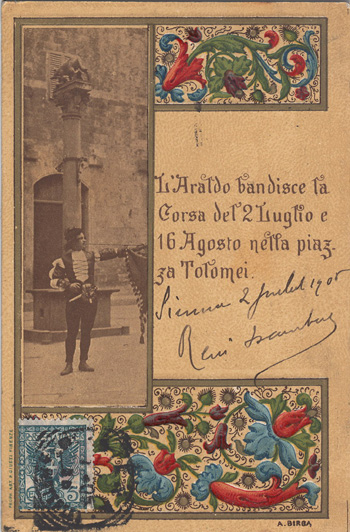 L'Araldo bandisce la
Corsa del 2 Luglio e
16 Agosto nella piaz-
za Tolomei.
Sienna 2 Juillet 1905
René
A. BIRGA